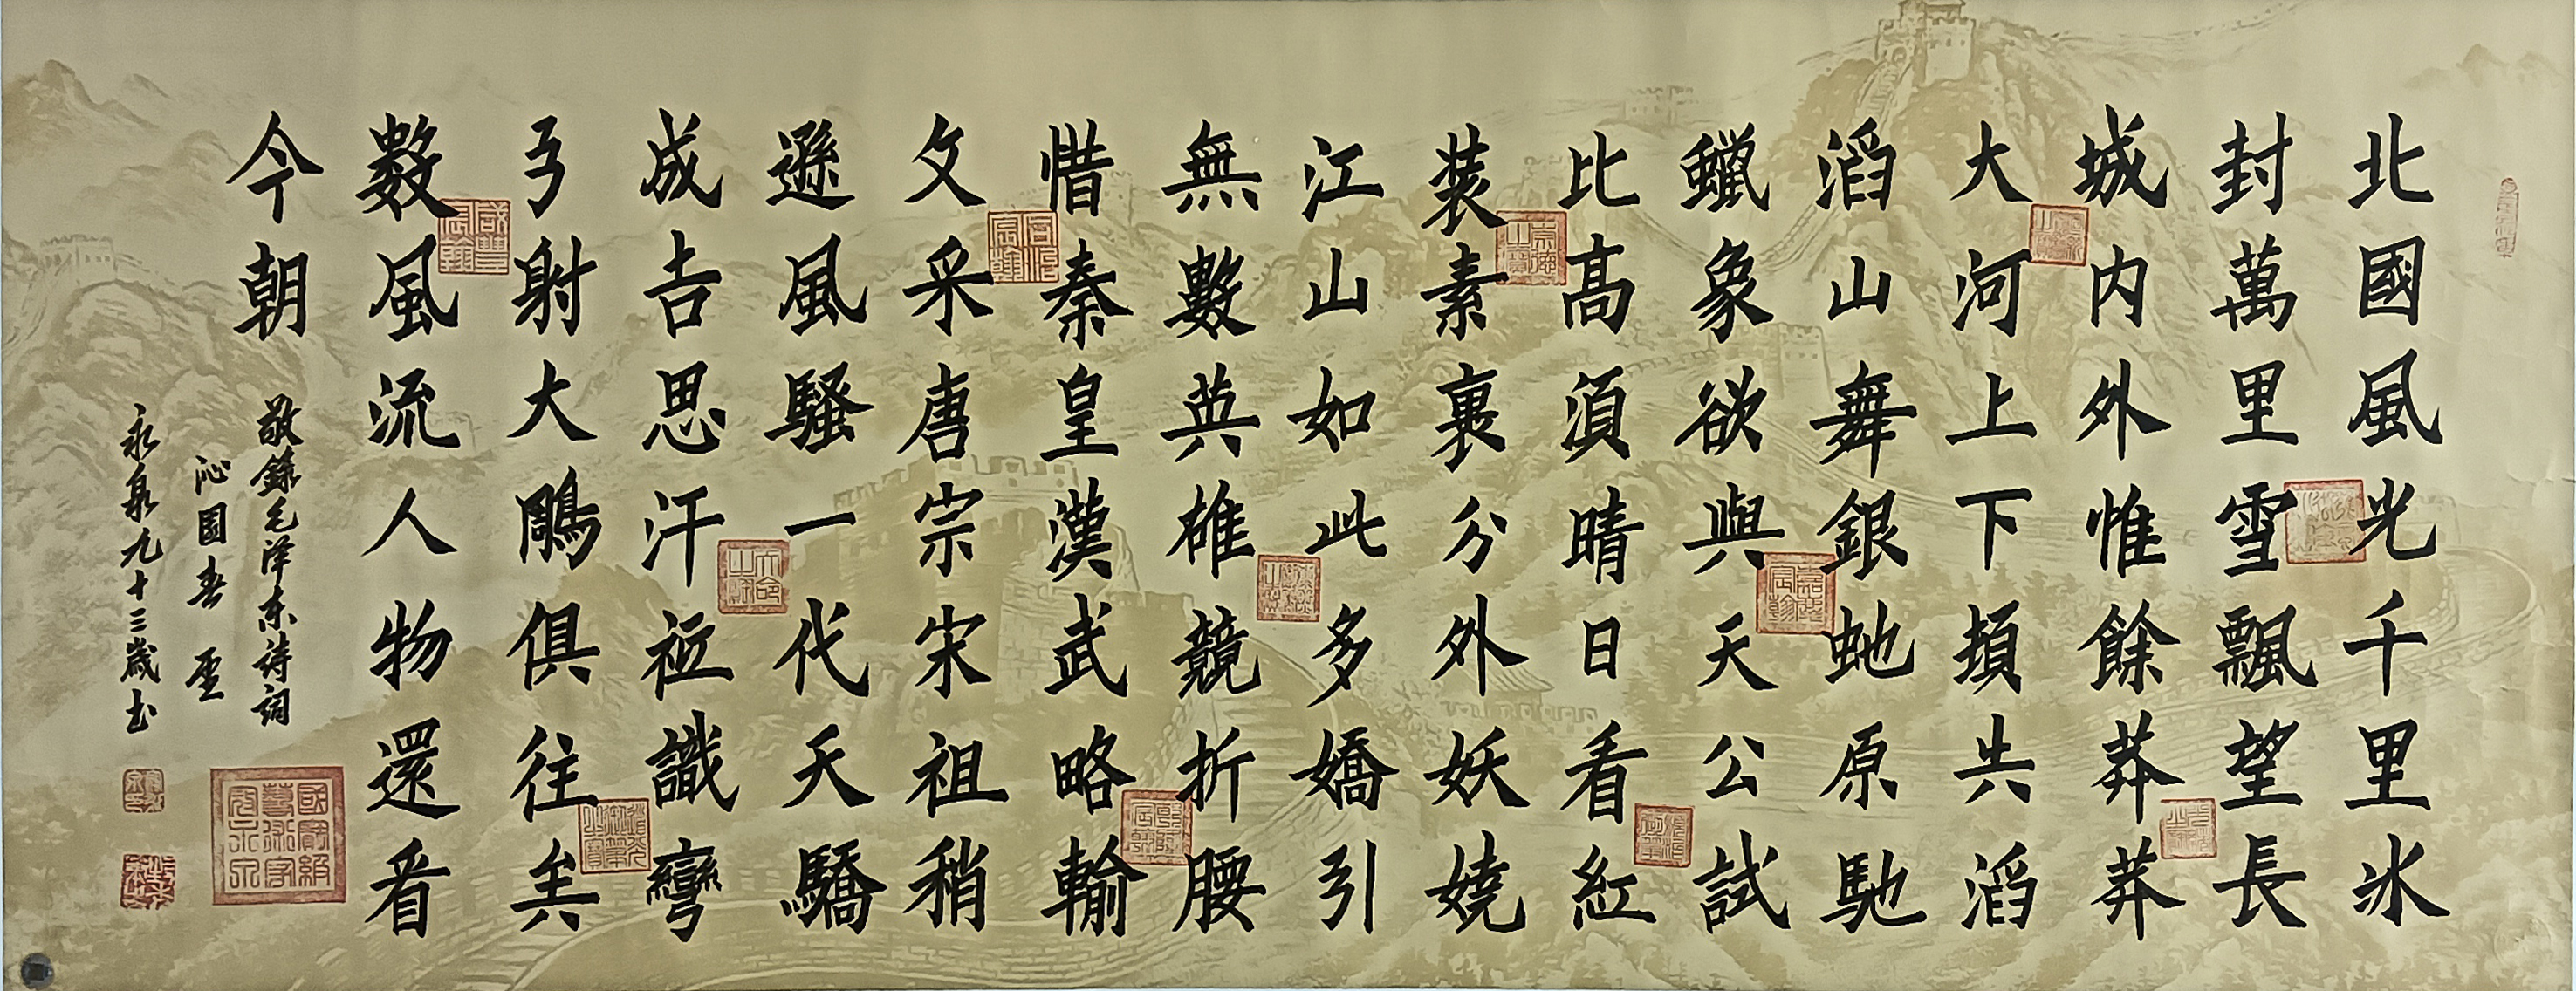 北國風光千里冰
封萬里雪飄望長
城内外惟餘莽莽
大河上下頓失滔
滔山舞銀虵原馳
蠟象欲與天公試
比高須晴日看紅
装素裹分外妖嬈
江山如此多嬌引
無數英雄競折腰
惜秦皇漢武略輸
文采唐宗宋祖稍
遜風騷一代天驕
成吉思汗衹識彎
弓射大鵰俱往矣
数風流人物還看
今朝
敬錄毛澤东詩詞
沁園春 雪
永泉九十三歲书
國寶級
藝術家